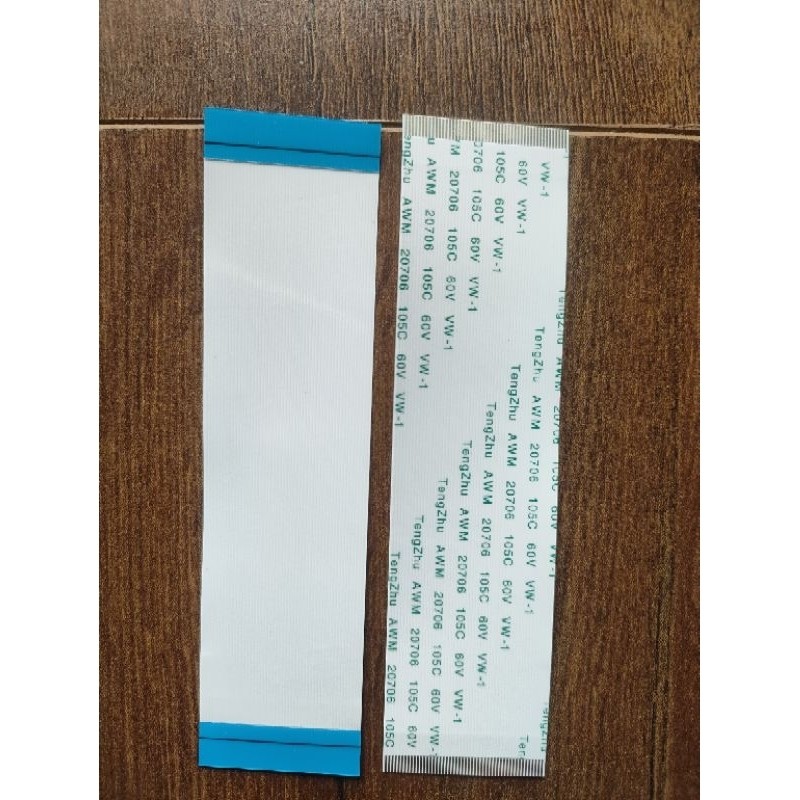 VW-1
60V VW-1
105C 60V VW-1
20706 105C 60V VW-1
AWM 20706 105C 60V VW-1
AWM 20706 105C 60V VW-1
TengZhu AWM 20706 105C 60V VW-1
TengZhu AWM 20706 105C 60V VW-1
TengZhu AWM 20706 105C 60V VW-1
TengZhu AWM 20706 105C 60V VW-1
TengZhu AWM 20706 105C 60V VW-1
TengZhu AWM 20706 105C 60V VW-1
TengZhu AWM 20706 105C 60V VW-
TengZhu AWM 20706 105C 60V
TengZhu AWM 20706 105C
Ten
TengZhu